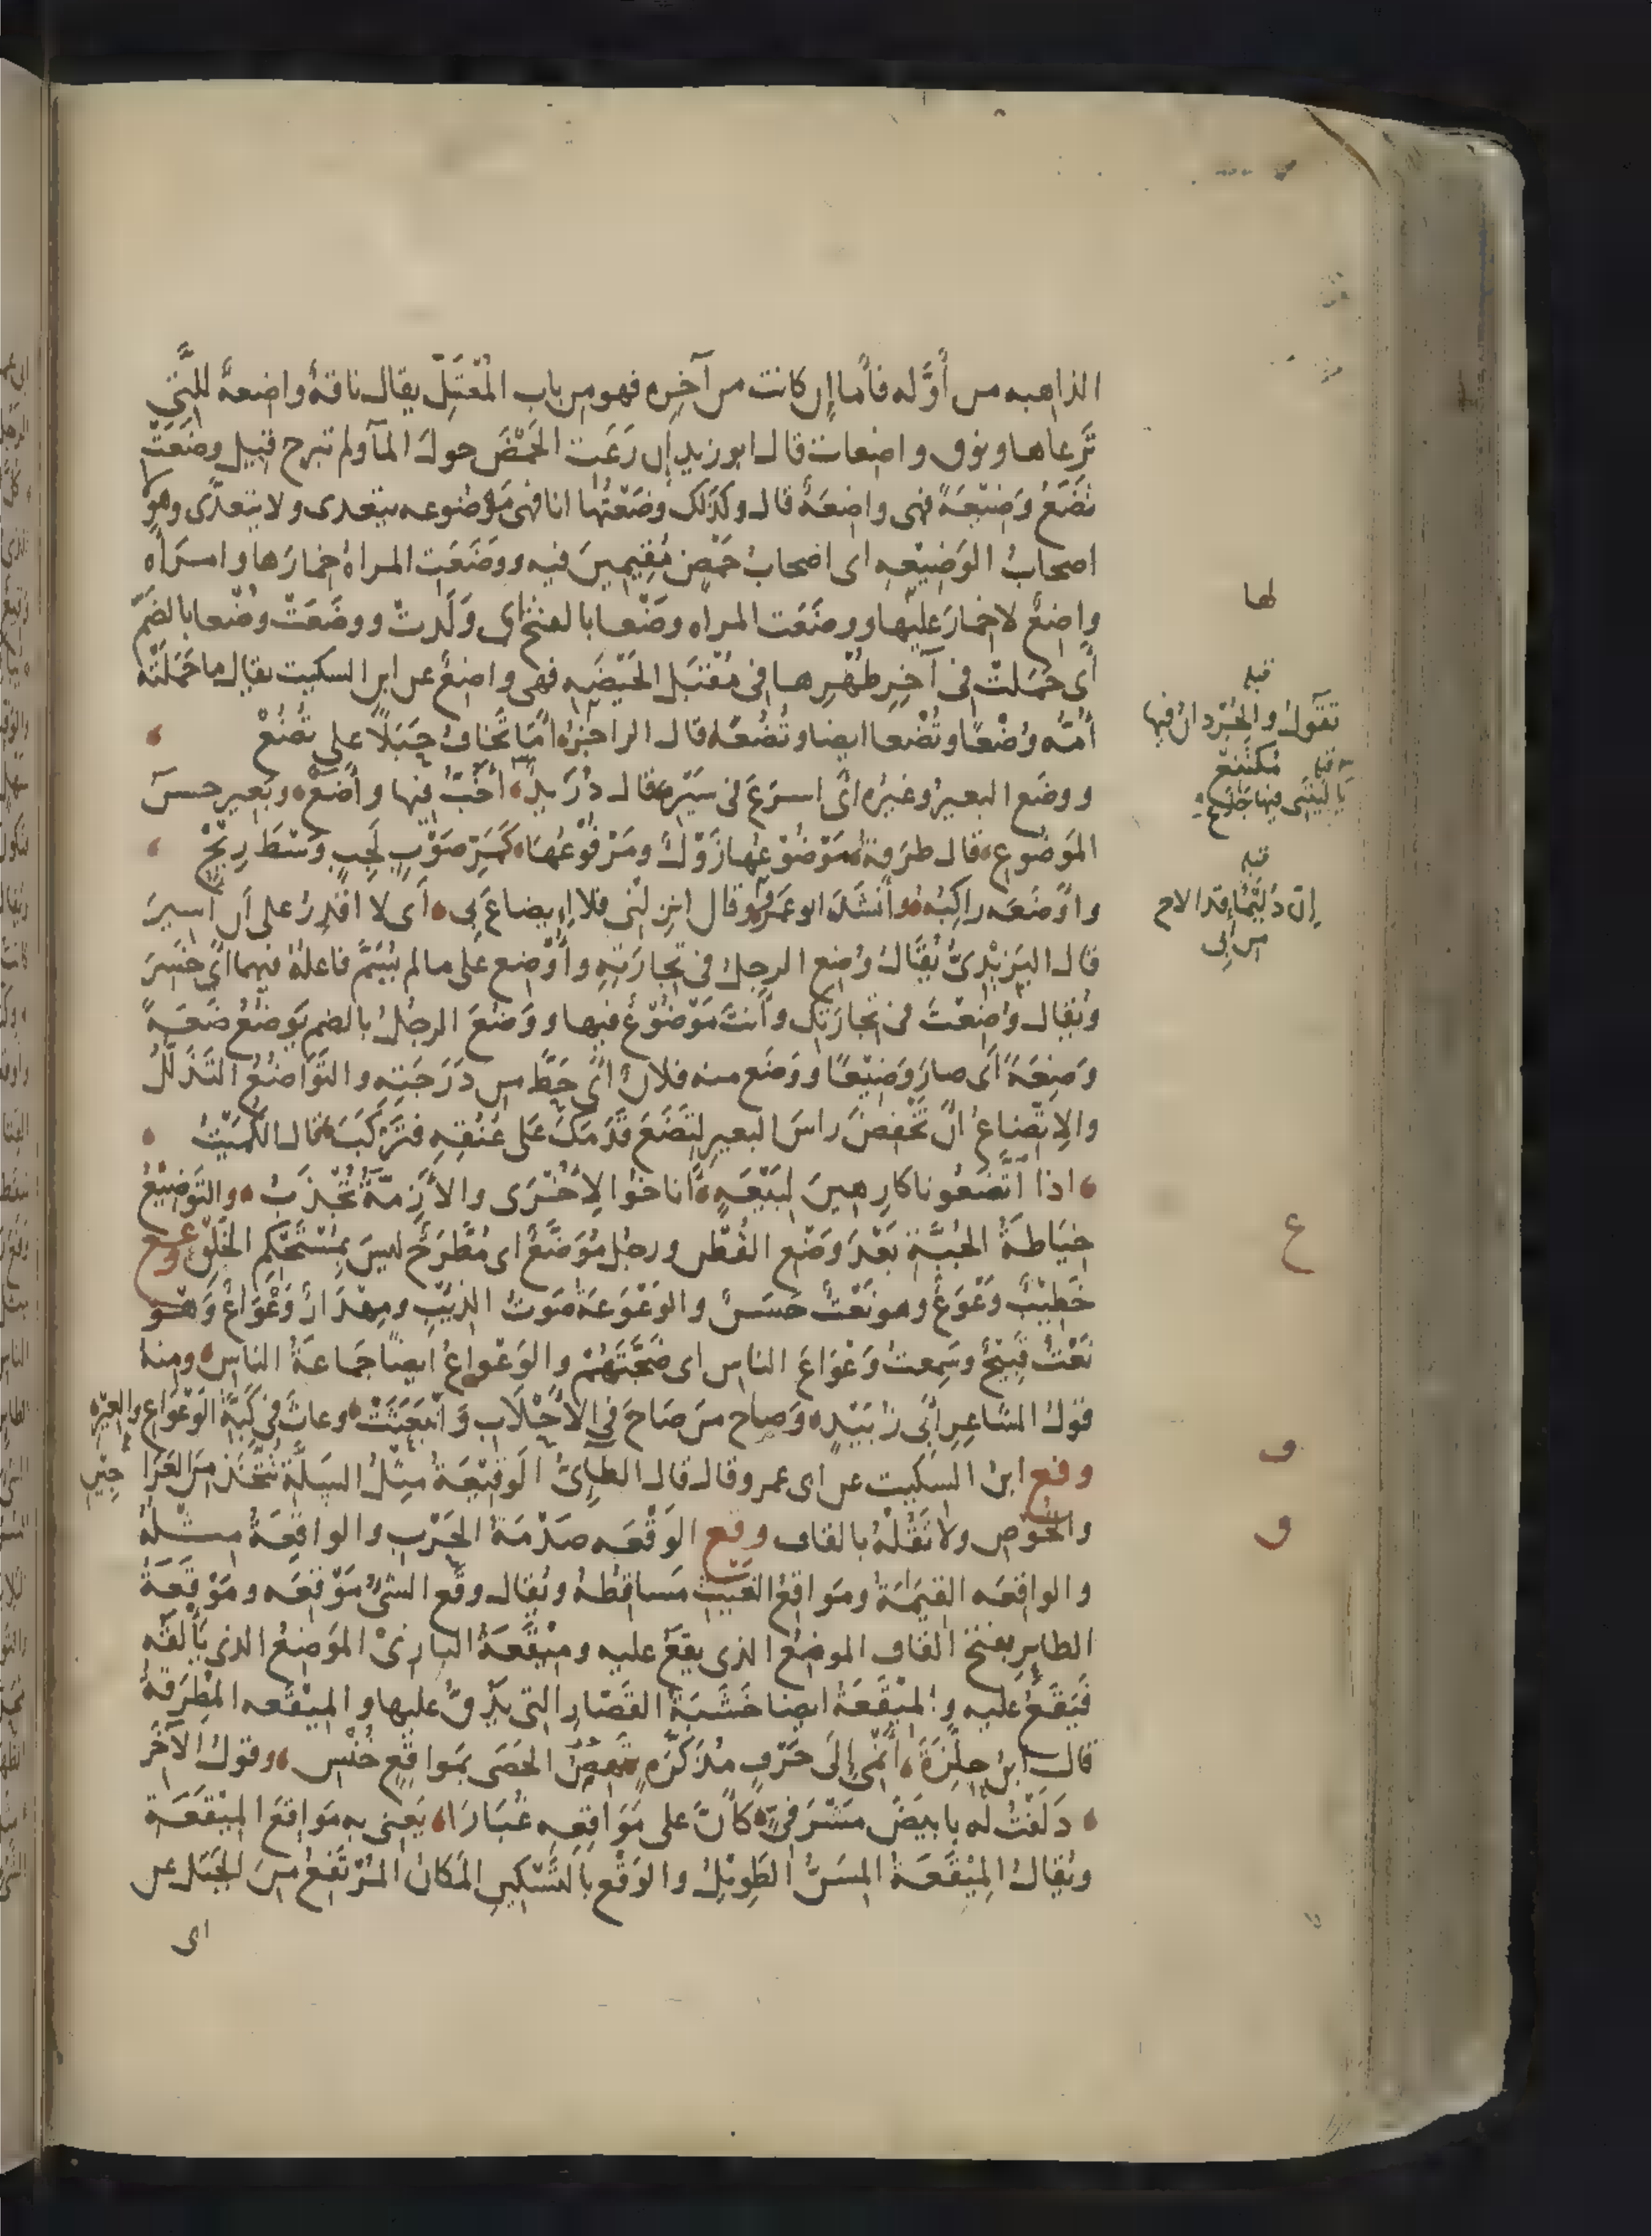 الذاهبه من أوَّله فأما إن كانت من آخِرِه فهو من باب المُعْتَلّ يقال ناقةٌ واضعةٌ للتي
تَرعاها ونوق واضعات قال ابو زيد إن رَعَت الحَمْضَ حولَ المآ ولم تبرح قيل وضَعَتْ
تَضَعُ وَضيْعَةً فهى واضِعَةٌ قال وكذلك وضَعْتُها انا فهى مَوْضوعه يتعدى ولا يتعدَّى وهو
اصحابُ الوَضِيْعه اى اصحابُ حَمْضٍ مُقِيمِينَ فيه ووَضَعَتِ المراةُ خِمارَها وامراة
واضِعٌ لا خِمارَ عليها ووضَعَت المراه وضْعا بالفتح اى وَلَدتْ ووضَعَتْ وُضْعا بالضَمّ
أى حَمَلتْ فى آخِرِ طُهْرِها فى مُقْبَلِ الحَيْضَه فهى واضعٌ عن ابن السكيت يقال ما حَمَلَتْه
أُمُّه وُضْعًا وتُضْعا ايضا وتُضُعًا قال الراجزُ أمَا تَخافُ حَبَلًا على تُضُعْ
ووضَع البعيرُ وغيرُه أى اسرَعَ فى سَيْرِه قال دُرَيدٌ أخُبُّ فيها وأضَعْ وبَعير حسنُ
المَوضُوعِ قال طرَفة مَوْضُوْعُها زَوْلٌ ومَرْفُوْعُهَا كَمَرِّ صَوْبٍ لَجِبٍ وَسْطَ رِيْحْ
وأوْضَعَه راكِبُه وأنْشَدَ ابو عَمْرو وقال انزلْنى فلا إيضاعَ بى أى لا اقْدِرُ على أن أسيرَ
قال اليَزِيْدِىّ يُقَالُ وُضِع الرجلُ فى تجارَتِهِ وأُوْضِع على ما لم يُسَمَّ فاعلهُ فيهما أى خَسِرَ
ويُقال وُضِعْتَ فى تجارَتِك وأنتَ مَوْضُوْعٌ فيها ووَضُعَ الرجُلُ بالضم يَوضُعُ ضَعَةً
وَضِعَةً أى صارَ وَضِيْعًا ووَضَع منه فلانٌ أى حَطَّ من دَرَجَتِهِ والتَّوَاضُعُ التَذَلُّلُ
والاِتّضاعُ أن تَخْفِضَ راسَ البعيرِ لتَضَعَ قَدَمَكَ عَلى عُنُقِهِ فتَرْكَبَ قال الكُمَيْتُ
اذا اتَّضَعُونا كارِهينَ لبَيْعَةٍ أناخُوا لاُخْرَى والأَزِمَّةُ تُجْذَبُ والتَوضِيْعُ
خِيَاطةُ الجُبَّةِ بَعْدَ وَضْعِ القُطْنِ ورجُل مُوَضَّعٌ اى مُطَّرَحٌ ليسَ بمُسْتَحْكِم الخَلْق وعع
خَطِيْبٌ وَعْوَعٌ وهو نَعْتٌ حَسَنٌ والوَعْوَعَةُ صَوتُ الذيبِ ومِهْذَارٌ وَعْوَاعٌ وَهْو
نَعْتٌ قَبِيْحٌ وسَمِعتُ وَعْوَاعَ الناس اى ضَجَّتَهُمْ والوَعْواعُ ايضًا جَماعَةُ الناس ومنه
قولُ الشاعِرِ أبى زُبَيْدٍ وَصاح مَن صَاحَ فى الأَحْلَابِ وَانْبَعَثَتْ وعاثَ فى كَبَّةِ الوَعْوَاعِ والعِيْرِ
وفع ابنُ السكيت عن أبى عمرو قال قال الطائىُّ الوَفِيْعَةُ مِثْلُ السَلَّةِ تُتَّخَذ من العَرَاجِيْن
والخُوص ولا تَقُلْهُ بالقاف وقع الوَقْعَه صَدْمَةُ الحَرْبِ والواقِعَةُ مثلهُ
والواقِعَه القِيَمَةُ ومَواقِعُ الغَيْثِ مَساقِطُهُ ويُقال وقَع الشىُ مَوْقِعَه ومَوْقَعَةُ
الطاير بفتح القاف الموضِعُ الذى يقعُ عليه ومِيْقَعَةُ البازِىْ المَوضِعُ الذى يَألفُه
فَيَقَعُ عليه والمِيْقَعَةُ ايضا خَشَبَةُ القَصَّارِ التى يَدُقُّ عليها والمِيْقَعه المِطْرَقةُ
قال ابنُ حِلِّزَةَ أنْمِى إلى حَرْفٍ مُذَكَّرَةٍ تَهِصُ الحَصَى بمَواقِعٍ خُنْسِ وقولُ الآخَر
دَلَفْتُ له بابيَضَ مَشْرَفِىٍّ كأنَّ على مَوَاقِعِه غُبَارَا يَعنى به مَواقِعَ المِيْقَعَة
ويُقالُ المِيْقَعَةُ المِسَنُّ الطَوِيْلُ والوَقْع بالتَّسْكِينِ المَكانُ المُرْتَفِعُ مِنَ الجَبَل عن
لها
قبله
تقولُ والجُرْدانُ فيها مُكْتَنِعْ
قبله
يا ليتَنى فيها جَذَعْ
قبله
إنّ دُلَيْمًا قد ألاح
من أبى
ع
ف
ق
اى